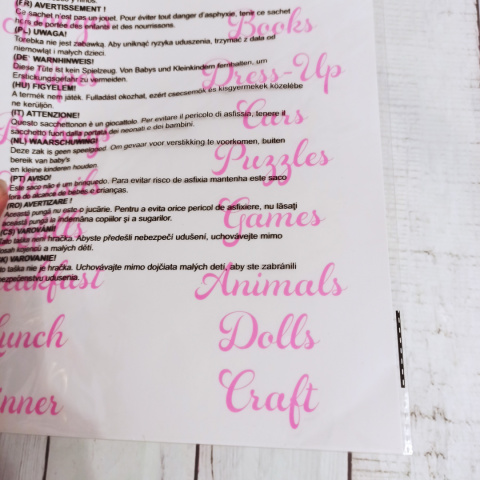 (FR) AVERTISSEMENT !
Ce sachet n'est pas un jouet. Pour éviter tout danger d'asphyxie, tenir ce sachet
hors de portée des enfants et des nourrissons.
(PL) UWAGA!
Torebka nie jest zabawką. Aby uniknąć ryzyka uduszenia, trzymać z dala od
niemowląt i małych dzieci.
(DE) WARNHINWEIS!
Diese Tüte ist kein Spielzeug. Von Babys und Kleinkindern fernhalten, um
Erstickungsgefahr zu vermeiden.
(HU) FIGYELEM!
A termék nem játék. Fulladást okozhat, ezért csecsemők és kisgyermekek közelébe
ne kerüljön.
(IT) ATTENZIONE!
Questo sacchettonon è un giocattolo. Per evitare il pericolo di asfissia, tenere il
sacchetto fuori dalla portata dei neonati e dei bambini.
(NL) WAARSCHUWING!
Deze zak is geen speelgoed. Om gevaar voor verstikking te voorkomen, buiten
bereik van baby's
en kleine kinderen houden
(PT) AVISO!
Este saco não é um brinquedo. Para evitar risco de asfixia mantenha este saco
fora de alcance de bebés e crianças.
(RO) AVERTIZARE !
Această pungă nu este o jucărie. Pentru a evita orice pericol de asfixiere, nu lăsaţi
această pungă la îndemâna copiilor şi a sugarilor.
(CS) VAROVÁNÍ!
Tato taška není hračka. Abyste předešli nebezpečí udušení, uchovávejte mimo
dosah kojenců a malých dětí.
(SK) VAROVANIE!
taška nie je hračka. Uchovávajte mimo dojčiata malých detí, aby ste zabránili
nebezpečenstvu udusenia.
Books
Dress-Up
Cars
Puzzles
Games
Animals
Dolls
Craft
eakfast
unch
nner